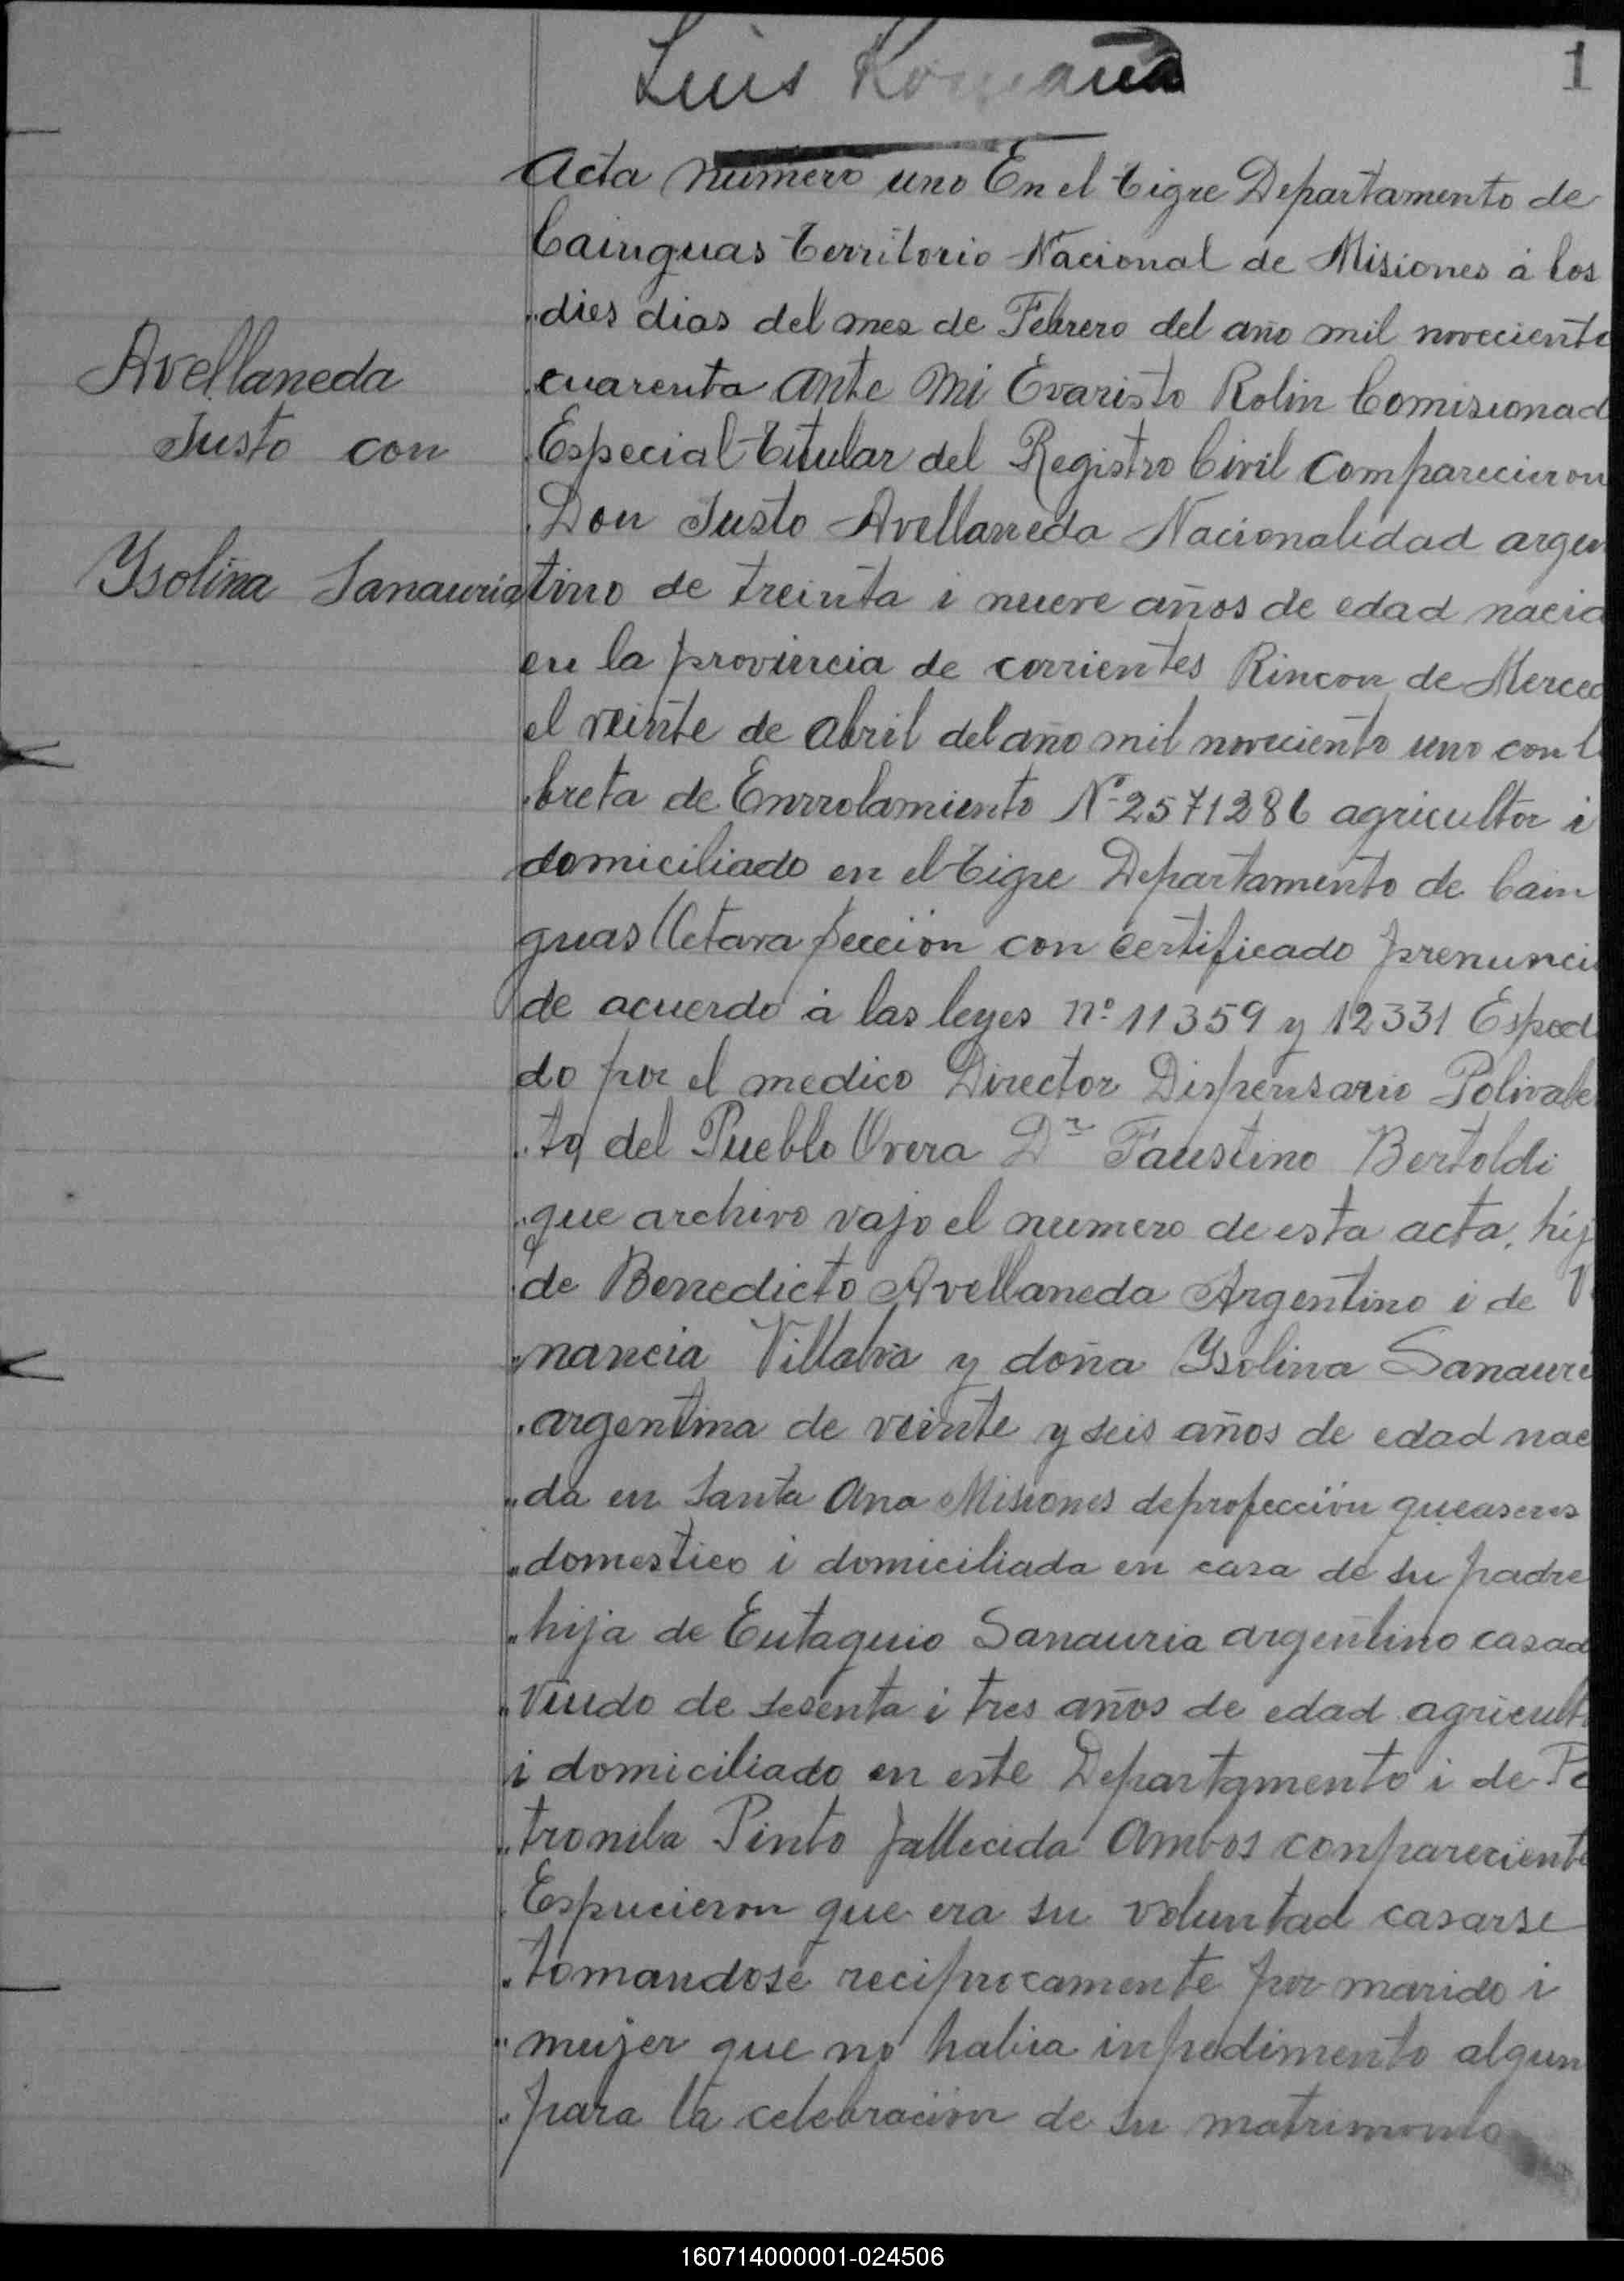 Luis Romana
1
Acta numero uno En el tigre Departamento de
Cainguas territorio Nacional de Misiones á los
dies dias del mes de Febrero del año mil noveciento
cuarenta ante mi Evaristo Rolin Comisionad
Especial titular del Registro Civil comparecieron
Don Justo Avellaneda Nacionalidad argen
tino de treinta i nueve años de edad nacid
en la provincia de corrientes Rincon de Merced
el veinte de abril del año mil noveciento uno con l
breta de Enrrolamiento Nº 2571286 agricultor i
domiciliado en el tigre Departamento de Cain
guas Octava seccion con certificado prenunci
de acuerdo á las leyes nº 11359 y 12331 Esped
do por el medico Director Dispensario Polivale
to del Pueblo Overa Dr Faustino Bertoldi
que archivo vajo el numero de esta acta, hij
de Benedicto Avellaneda Argentino i de V
nancia Villalva y doña Ysolina Sanauri
argentina de veinte y seis años de edad naci
da en Santa Ana Misiones de profección queaseres
domestico i domiciliada en casa de su padre
hija de Eutaquio Sanauria argentino casad
viudo de sesenta i tres años de edad agricult
i domiciliado en este Departamento i de Pe
tronila Pinto fallecida ambos conpareciente
Espucieron que era su voluntad casarse
tomandose reciprocamente por marido i
mujer que no habia inpedimento algun
para la celebración de su matrimonio
Avellaneda
Justo con
Ysolina Sanauria
160714000001-024506